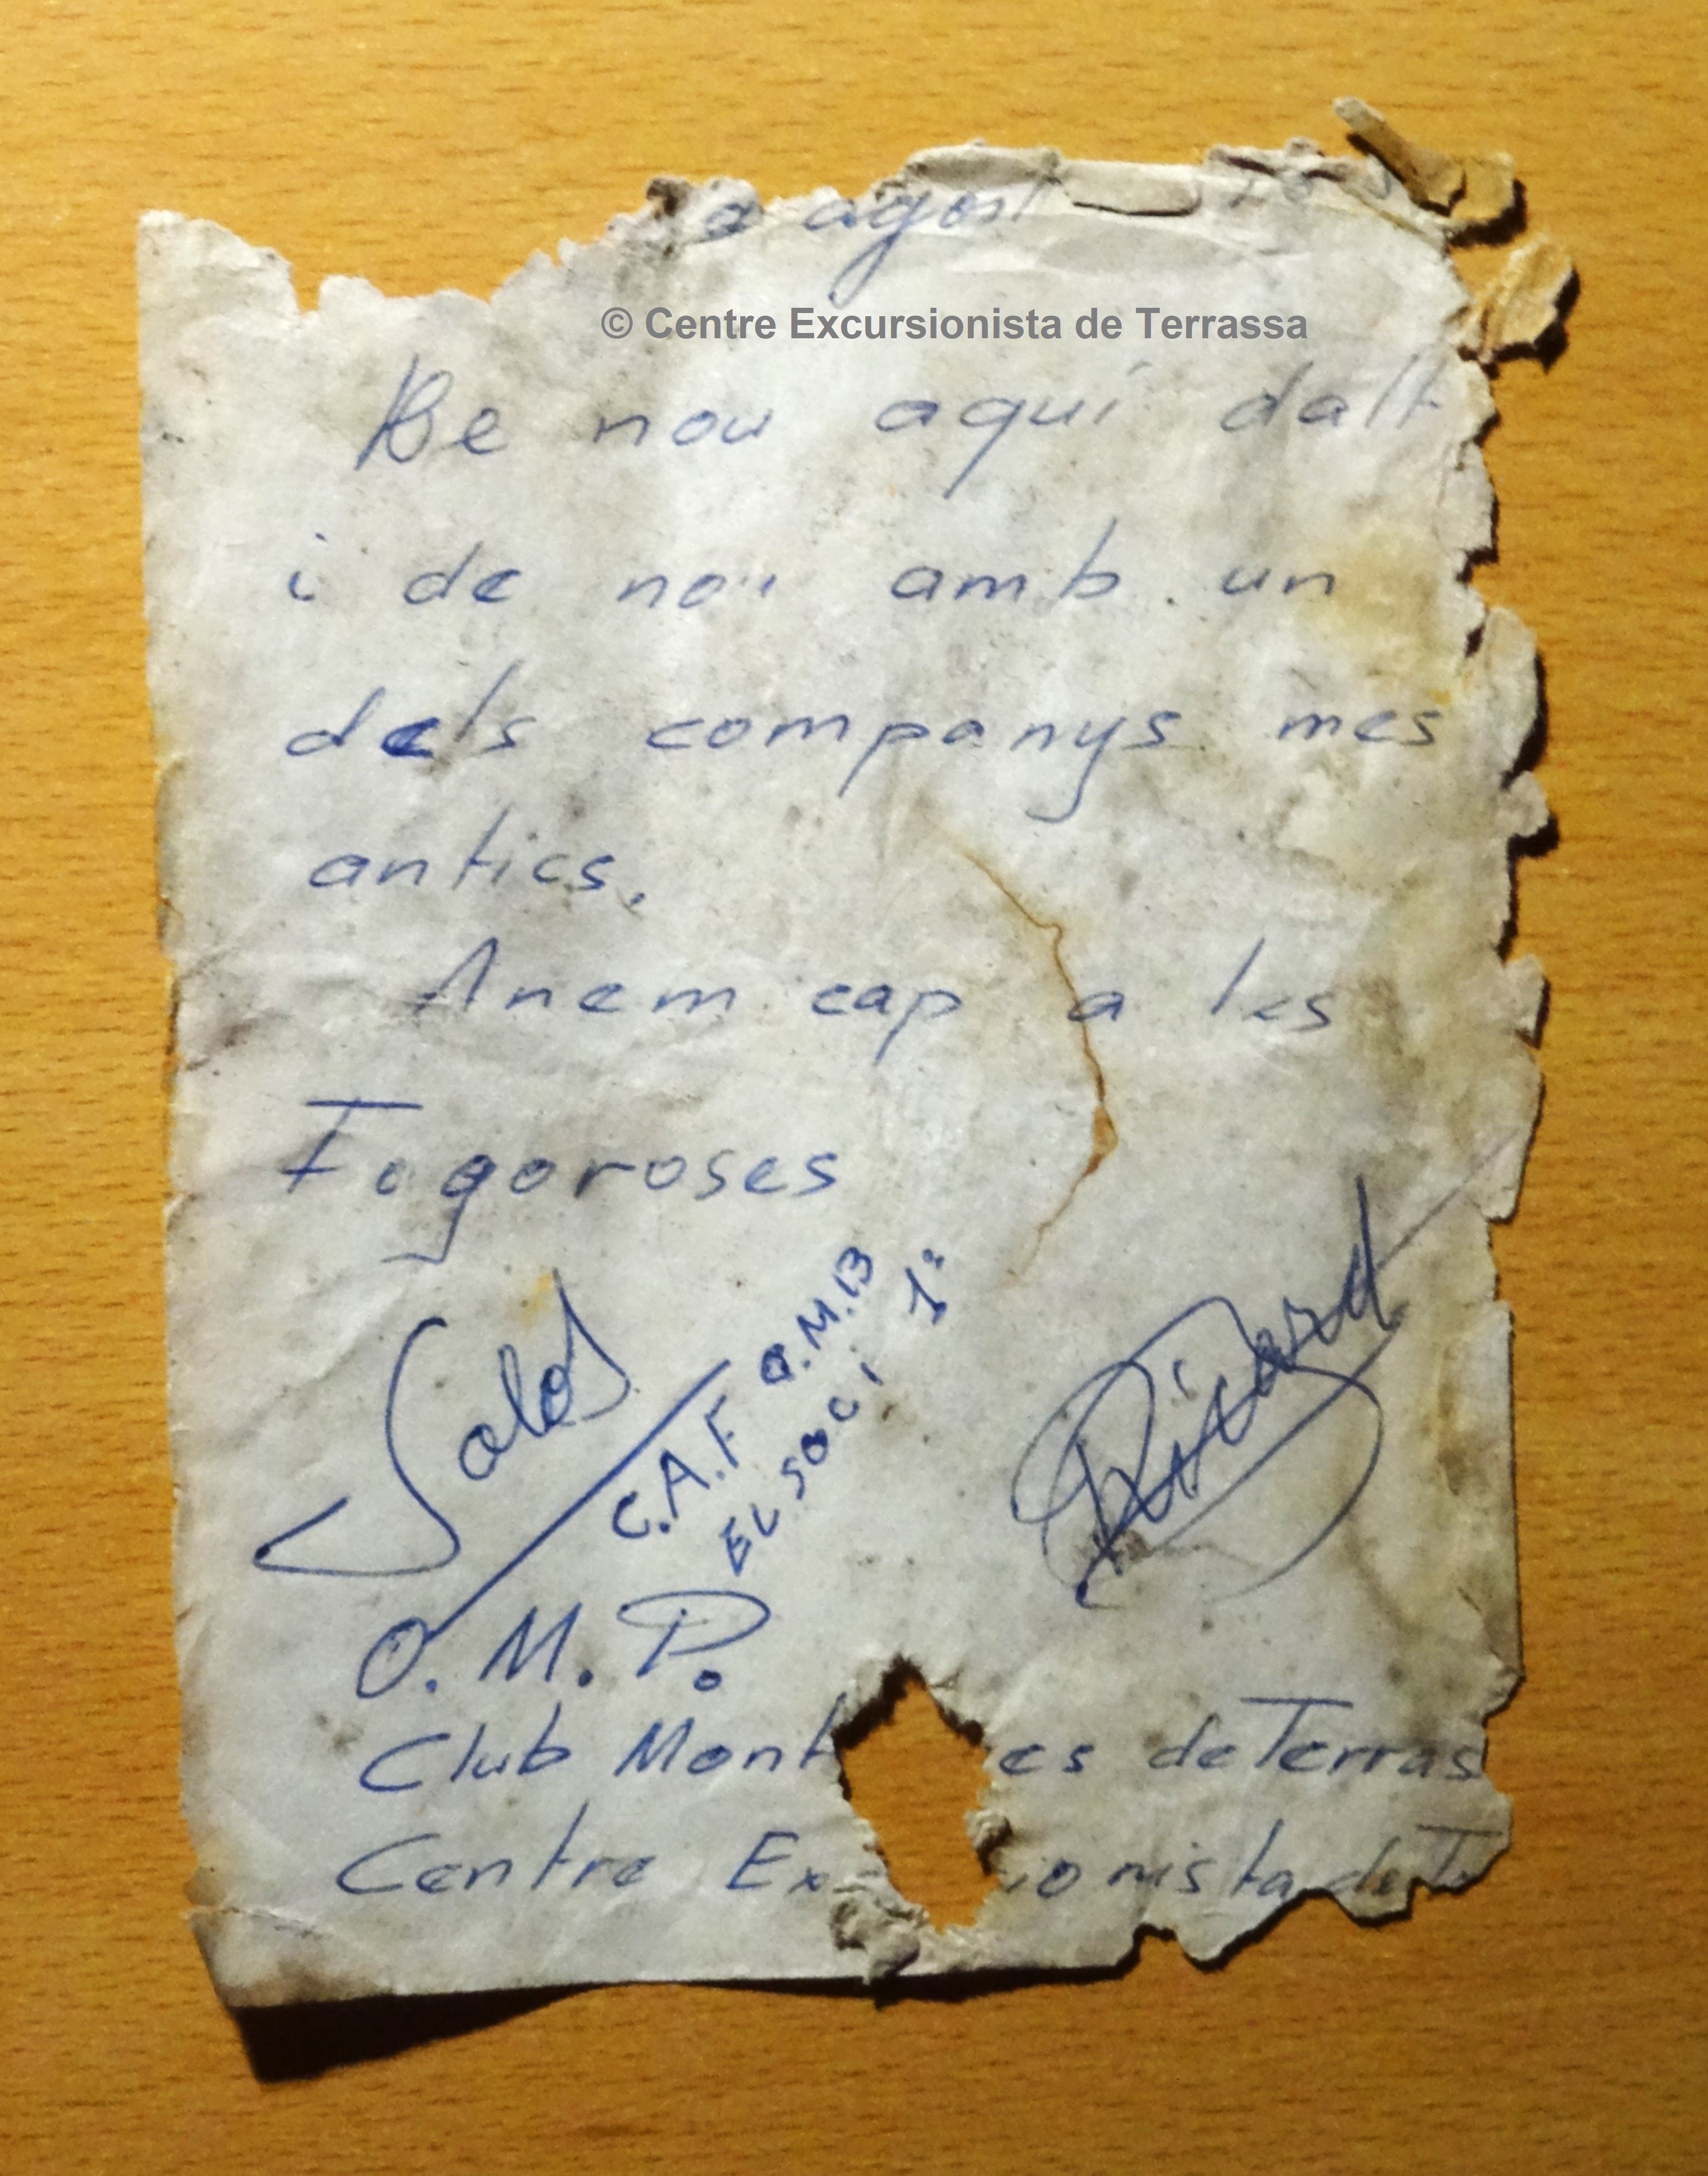 agost
© Centre Excursionista de Terrassa
De nou aquí dalt
i de nou amb un
dels companys mes
antics.
Anem cap a les
Fogoroses
C.A.F O.M.13
EL SOCi 1º
Ricard
O. M. P.
Club Mont es de Terras
Centre Ex ionista de Te